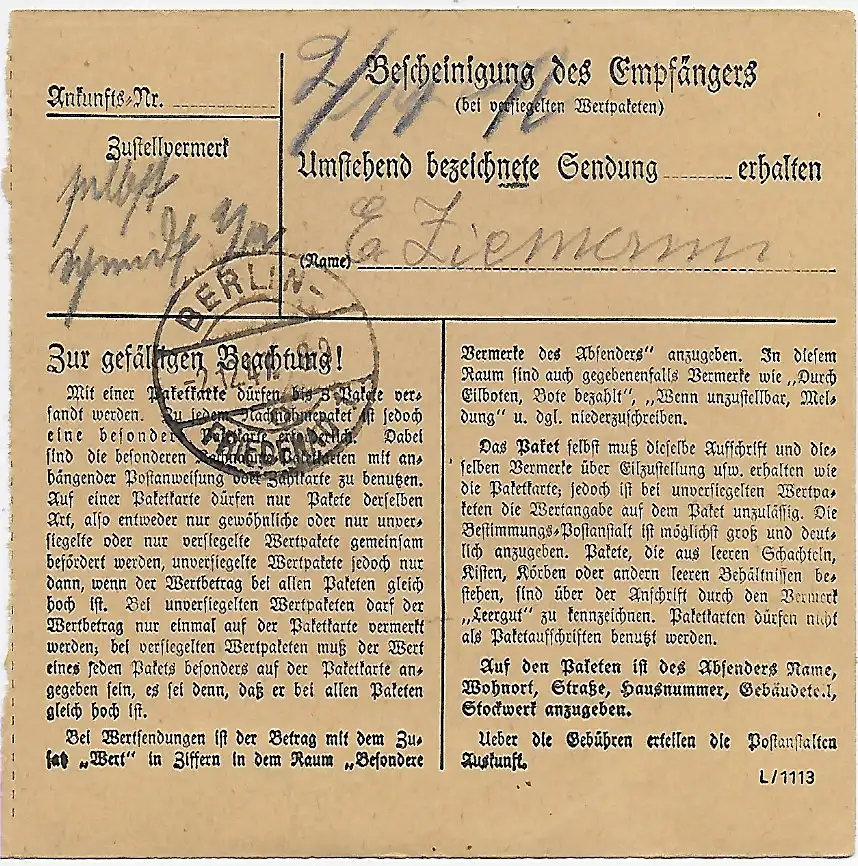 Ankunfts-Nr.
Zustellvermerk
selbst
Schmidt
Bescheinigung des Empfängers
(bei versiegelten Wertpaketen)
Umstehend bezeichnete Sendung erhalten
(Name) E Ziemann
BERLIN-
FRIEDENAU
Zur gefälligen Beachtung!
Mit einer Paketkarte dürfen bis 3 Pakete ver-
sandt werden. Zu jedem Nachnahmepaket ist jedoch
eine besondere Paketkarte erforderlich. Dabei
sind die besonderen Nachnahmepaketkarten mit an-
hängender Postanweisung oder Zahlkarte zu benutzen.
Auf einer Paketkarte dürfen nur Pakete derselben
Art, also entweder nur gewöhnliche oder nur unver-
siegelte oder nur versiegelte Wertpakete gemeinsam
befördert werden, unversiegelte Wertpakete jedoch nur
dann, wenn der Wertbetrag bei allen Paketen gleich
hoch ist. Bei unversiegelten Wertpaketen darf der
Wertbetrag nur einmal auf der Paketkarte vermerkt
werden; bei versiegelten Wertpaketen muß der Wert
eines jeden Pakets besonders auf der Paketkarte an-
gegeben sein, es sei denn, daß er bei allen Paketen
gleich hoch ist.
Bei Wertsendungen ist der Betrag mit dem Zu-
satz „Wert" in Ziffern in dem Raum „Besondere
Vermerke des Absenders" anzugeben. In diesem
Raum sind auch gegebenenfalls Vermerke wie „Durch
Eilboten, Bote bezahlt", „Wenn unzustellbar, Mel-
dung" u. dgl. niederzuschreiben.
Das Paket selbst muß dieselbe Aufschrift und die-
selben Vermerke über Eilzustellung usw. erhalten wie
die Paketkarte; jedoch ist bei unversiegelten Wertpa-
keten die Wertangabe auf dem Paket unzulässig. Die
Bestimmungs-Postanstalt ist möglichst groß und deut-
lich anzugeben. Pakete, die aus leeren Schachteln,
Kisten, Körben oder andern leeren Behältnissen be-
stehen, sind über der Anschrift durch den Vermerk
„Leergut" zu kennzeichnen. Paketkarten dürfen nicht
als Paketaufschriften benutzt werden.
Auf den Paketen ist des Absenders Name,
Wohnort, Straße, Hausnummer, Gebäudeteil,
Stockwerk anzugeben.
Ueber die Gebühren erteilen die Postanstalten
Auskunft.
L/1113